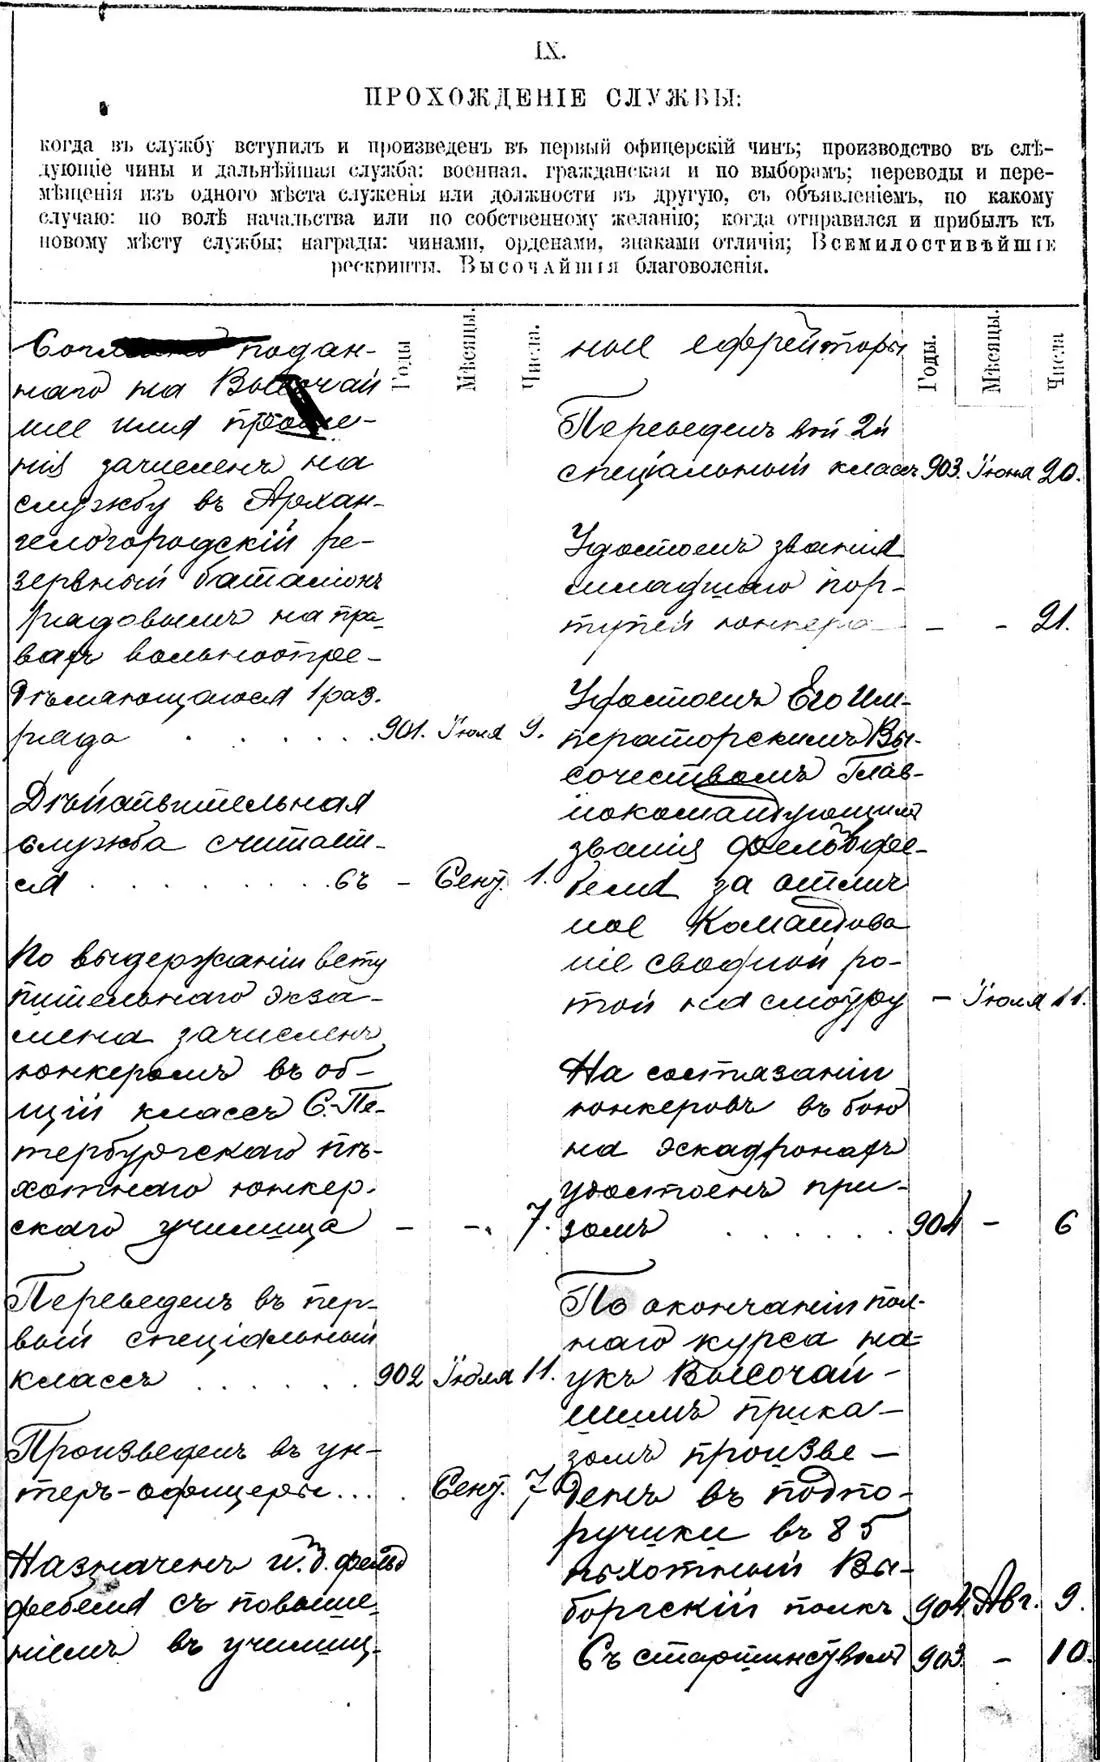 IX.
ПРОХОЖДЕНІЕ СЛУЖБЫ:
когда въ службу вступилъ и произведенъ въ первый офицерскій чинъ; производство въ слѣ-
дующіе чины и дальнѣйшая служба: военная, гражданская и по выборамъ; переводы и пере-
мѣщенія изъ одного мѣста служенья или должности въ другую, съ объявленіемъ, по какому
случаю: по волѣ начальства или по собственному желанію; когда отправился и прибылъ къ
новому мѣсту службы; награды: чинами, орденами, знаками отличія; Всемилостивѣйшіе
рескрипты, Высочайшія благоволенія.
Годы
Мѣсяцы.
Числа.
подан-
наго на Высочай
шее имя проше-
нія зачисленъ на
службу въ Архан-
гелогородскій ре-
зервный баталіонъ
рядовымъ на пра-
вахъ вольноопре-
дѣляющагося 1 раз.
ряда . . . . . . 901. Іюля 9.
Дѣйствительная
служба считает-
ся . . . . . . . . съ - Сент. 1.
По выдержаніи всту
пительнаго экза-
мена зачисленъ
юнкеромъ въ об-
щій классъ С.-Пе-
тербургскаго пѣ-
хотнаго юнкер-
скаго училища - - 7.
Переведенъ въ пер-
вый спеціальный
классъ . . . . . . 902 Іюля 11.
Произведенъ въ ун-
теръ-офицеры... . Сент. 7
Назначенъ и. д. фельд
фебеля съ повыше-
ніемъ въ училищ-
Годы.
Мѣсяцы.
Числа
ные ефрейторы
Переведенъ во 2й
спеціальный классъ 903. Іюня 20.
Удостоенъ званія
младшаго пор-
тупей юнкера - - 21.
Удостоенъ Его Им-
ператорскимъ Вы-
сочествомъ Глав-
нокомандующимъ
званія фельдфе-
беля за отлич
ное командова
ніе сводной ро-
той на смотру - Іюля 11.
На состязаніи
юнкеровъ въ бою
на эскадронахъ
удостоенъ при-
зомъ . . . . . . 904 - 6
По окончаніи пол-
наго курса на-
укъ Высочай-
шимъ прика-
зомъ произве-
денъ въ подпо-
ручики въ 85
пѣхотный Вы-
боргскій полкъ 904 Авг. 9.
Съ старшинствомъ 903. - 10.